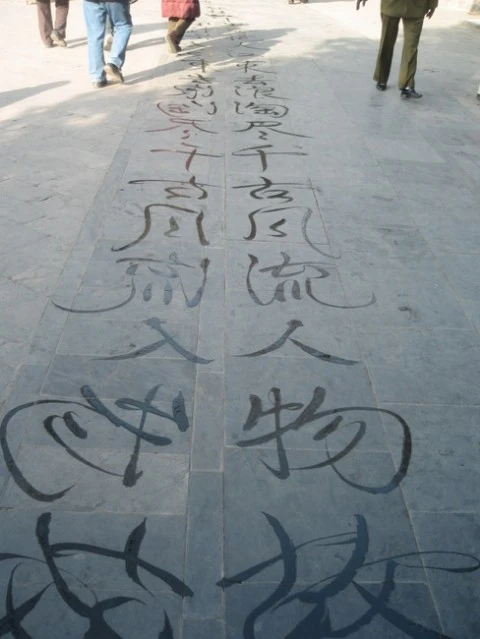 东去浪淘尽千古风流人物故
东去浪淘尽千古风流人物故